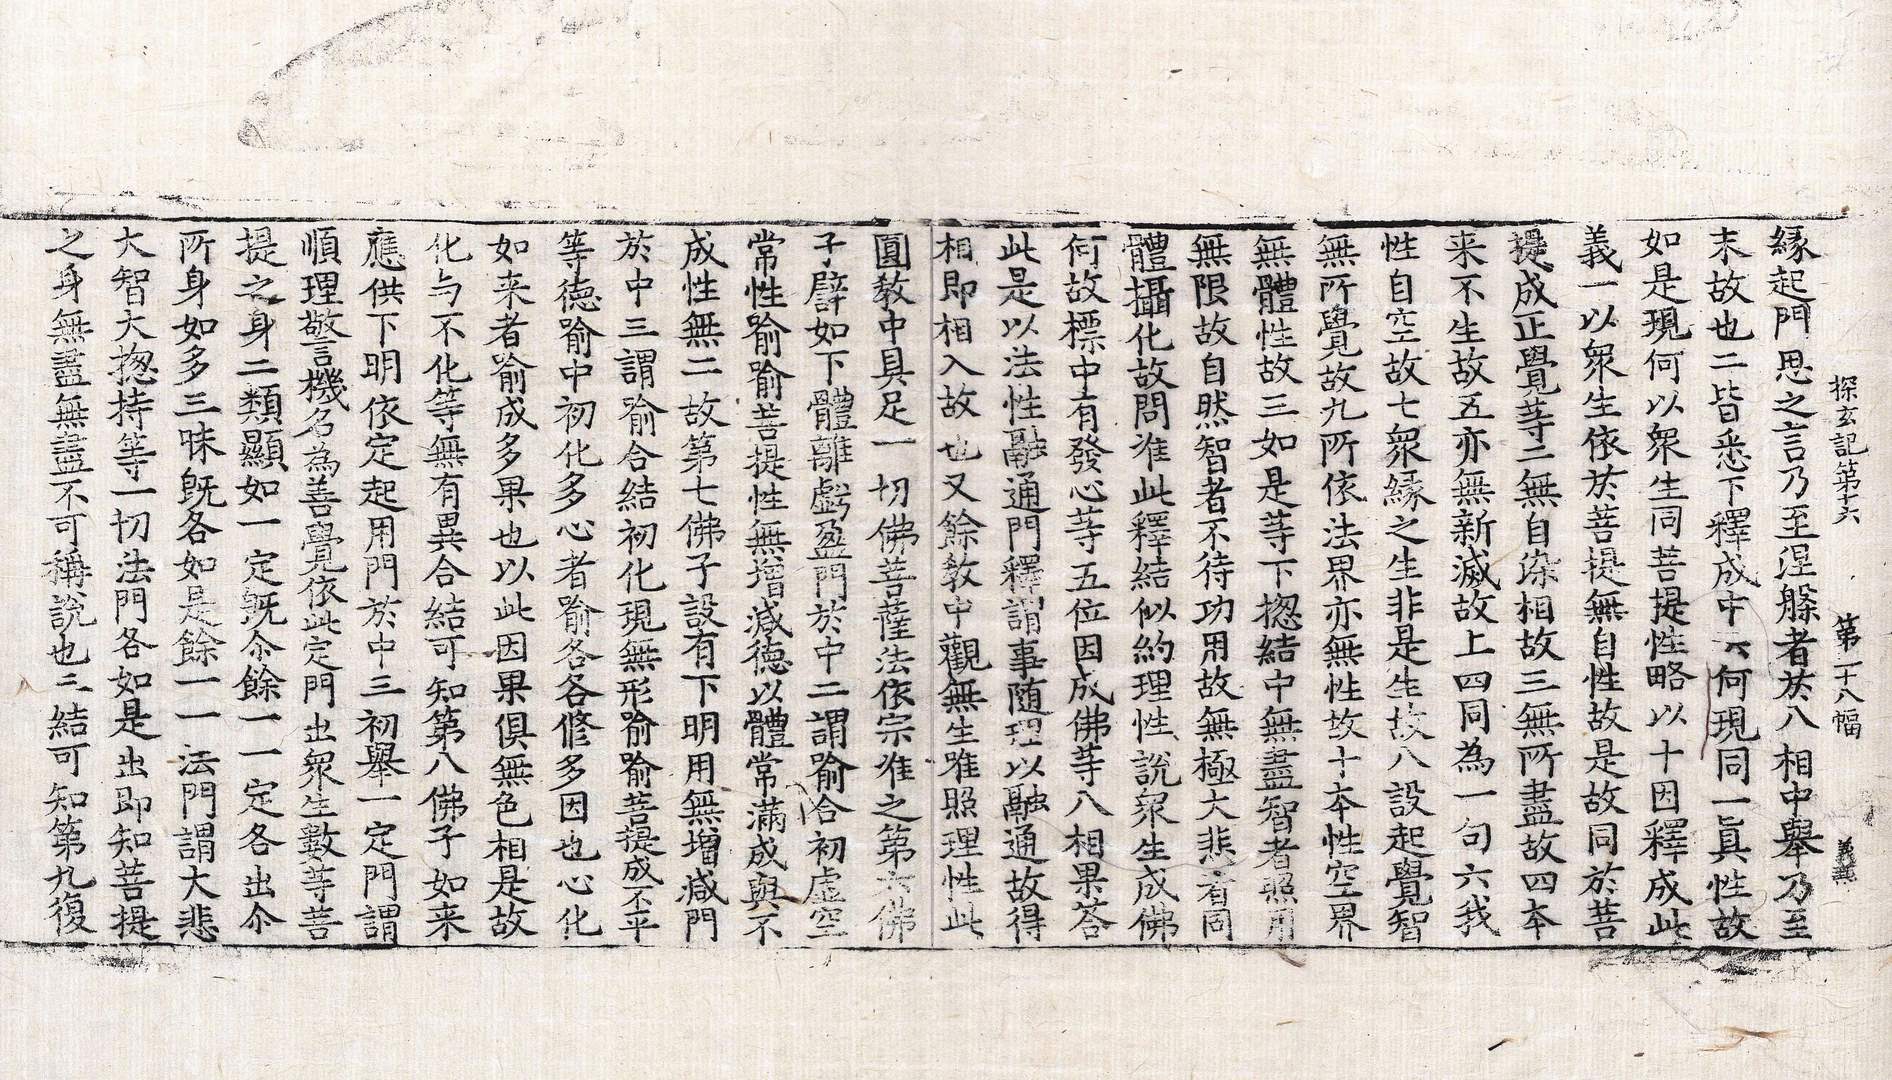 探玄記第十六 第二十八幅 義
緣起門思之言乃至涅槃者於八相中舉乃至
末故也二皆悉下釋成中六何現同一真性故
如是現何以眾生同菩提性略以十因釋成此
義一以眾生依於菩提無自性故是故同於菩
提成正覺等二無自染相故三無所盡故四本
来不生故五亦無新滅故上四同為一句六我
性自空故七眾緣之生非是生故八設起覺智
無所覺故九所依法界亦無性故十本性空界
無體性故三如是等下揔結中無盡智者照用
無限故自然智者不待功用故無極大悲者同
體攝化故問准此釋結似約理性說眾生成佛
何故標中有發心等五位因成佛等八相果答
此是以法性融通門釋謂事随理以融通故得
相即相入故也又餘教中觀無生唯照理性此
圓教中具足一切佛菩薩法依宗准之第六佛
子譬如下體離虧盈門於中二謂喻合初虛空
常性喻喻菩提性無增減德以體常滿成與不
成性無二故第七佛子設有下明用無增減門
於中三謂喻合結初化現無形喻喻菩提成不平
等德喻中初化多心者喻各各修多因也心化
如来者喻成多果也以此因果俱無色相是故
化与不化等無有異合結可知第八佛子如来
應供下明依定起用門於中三初舉一定門謂
順理警機名為善覺依此定門出眾生數等菩
提之身二類顯如一定既尒餘一一定各出尒
所身如多三昧既各如是餘一一法門謂大悲
大智大揔持等一切法門各如是出即知菩提
之身無盡無盡不可稱說也三結可知第九復